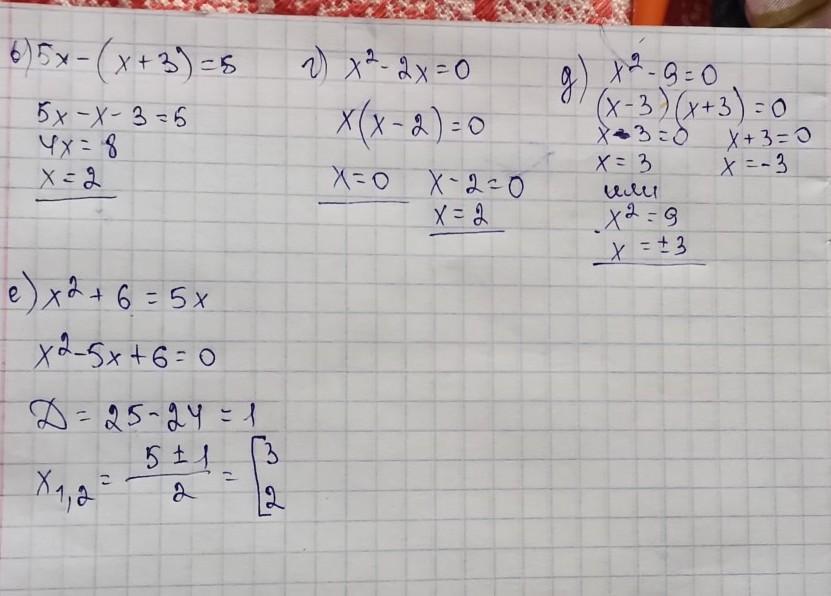 в) 5x - (x + 3) = 5
5x - x - 3 = 5
4x = 8
x = 2
г) x² - 2x = 0
x(x - 2) = 0
x = 0 x - 2 = 0
x = 2
д) x² - 9 = 0
(x - 3)(x + 3) = 0
x - 3 = 0 x + 3 = 0
x = 3 x = -3
или
x² = 9
x = ±3
е) x² + 6 = 5x
x² - 5x + 6 = 0
D = 25 - 24 = 1
x₁,₂ = (5 ± 1)/2 = [3
2